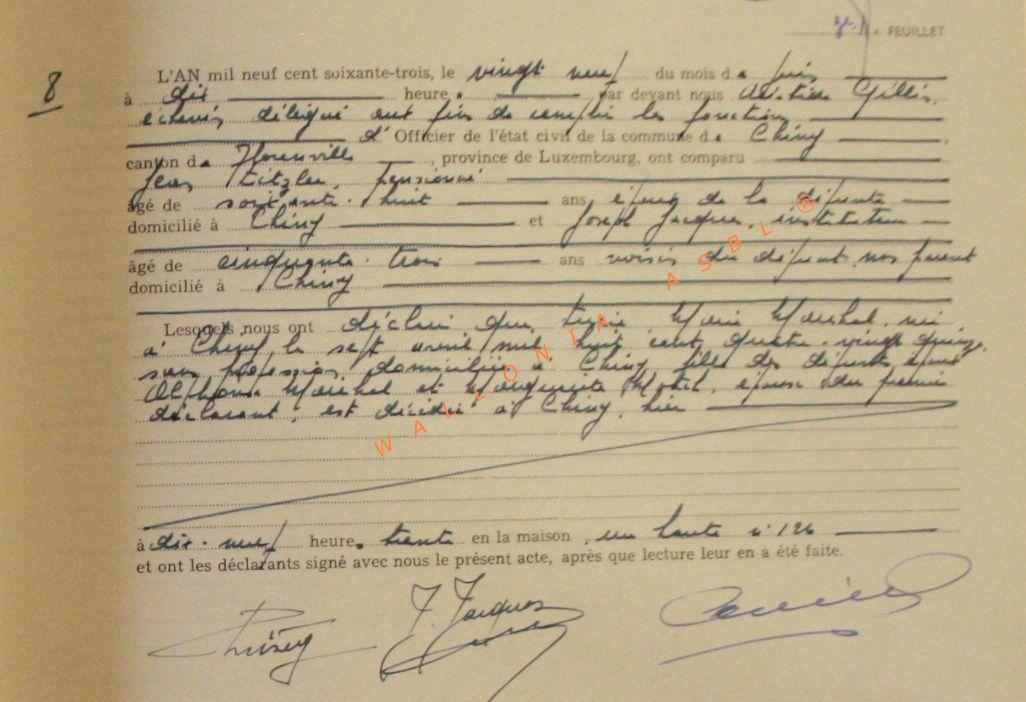 FEUILLET
8
L'AN mil neuf cent soixante-trois, le vingt neuf du mois de juin
à dix heure par devant nous Aristide Gillis,
échevin délégué aux fins de remplir les fonctions
d' Officier de l'état civil de la commune de Chiny
canton de Florenville, province de Luxembourg, ont comparu
Jean, pensionné
âgé de soixante-huit ans époux de la défunte
domicilié à Chiny et Joseph Jacques, instituteur
âgé de cinquante-trois ans voisin du défunt, non parent
domicilié à Chiny
Lesquels nous ont déclaré que Marie Maréchal, née
à Chiny, le sept avril mil huit cent quatre-vingt quinze,
sans profession, domiciliée à Chiny, fille des défunts époux
Alphonse Maréchal et Marguerite, épouse du premier
déclarant, est décédée à Chiny, hier
à dix-neuf heures trente en la maison, rue haute n° 126
et ont les déclarants signé avec nous le présent acte, après que lecture leur en a été faite.
J. Jacques
WALLONIA ASBL ®